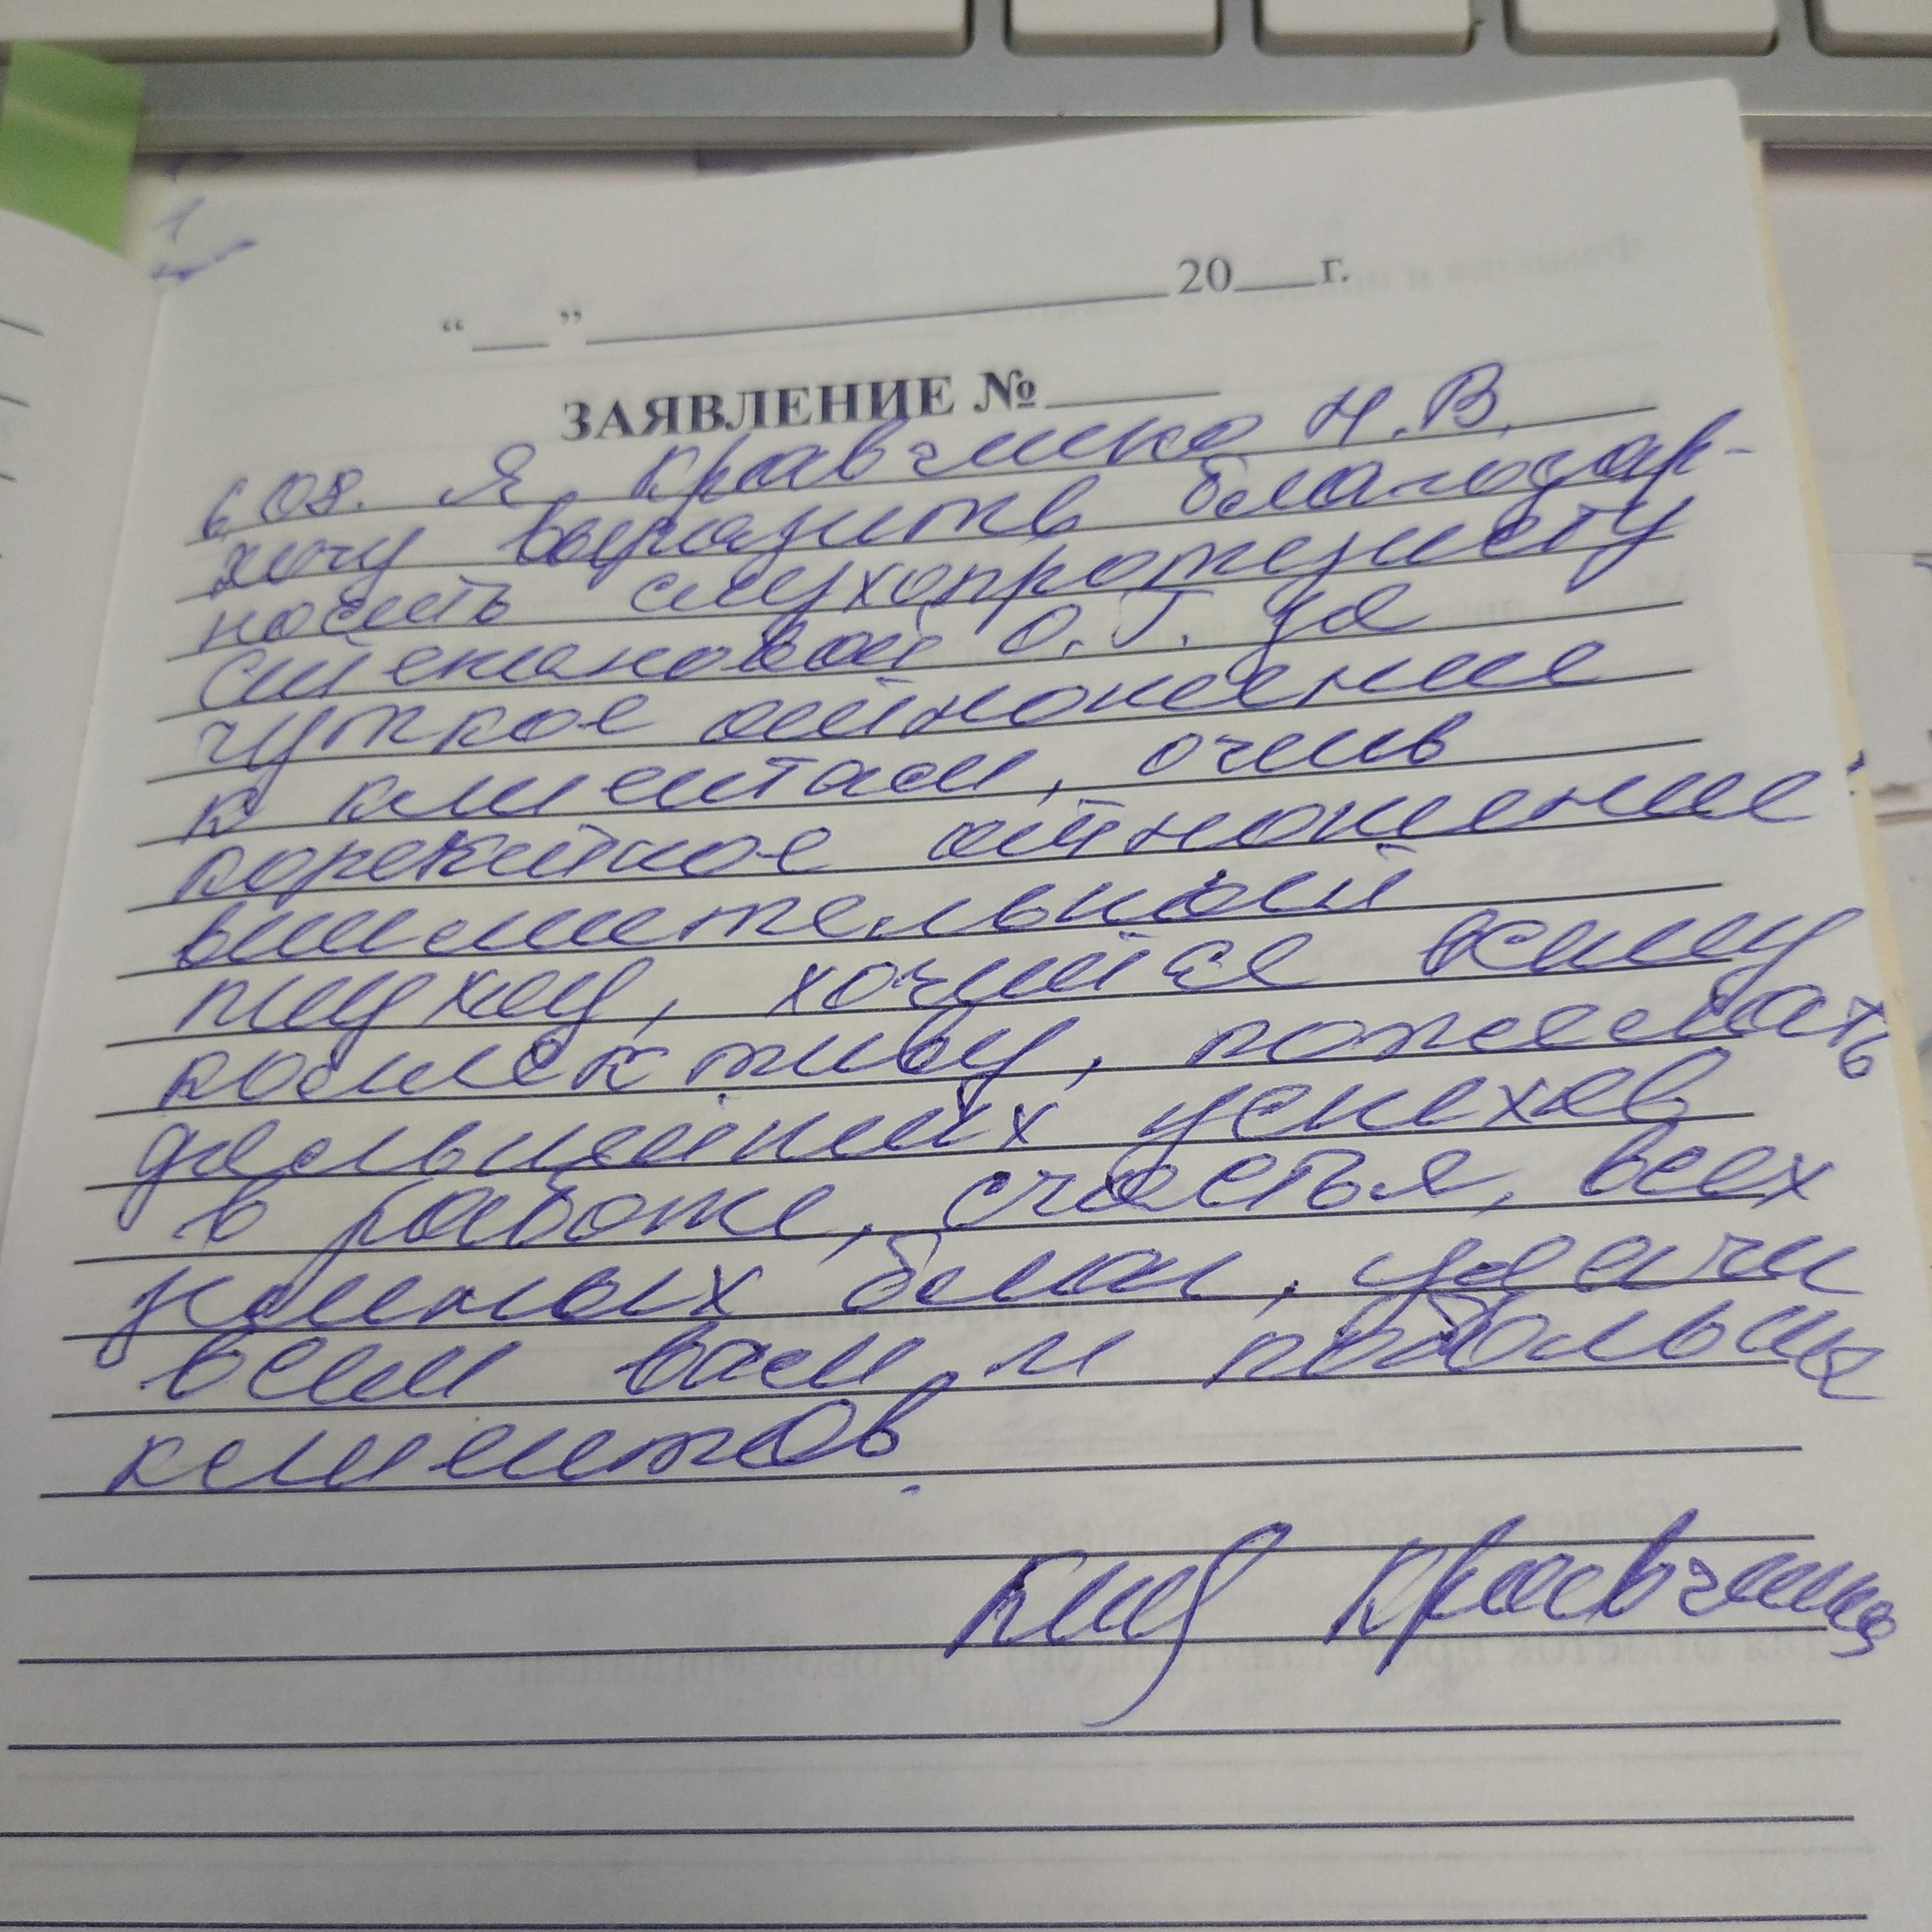 “__”____________20__г.
ЗАЯВЛЕНИЕ №____
6 08. Я, Кравченко Н.В.
хочу выразить благодар-
ность слухопротезисту
Степановой О.Г. за
чуткое отношение
к клиентам, очень
коректное отношение
внимательный
подход, хочится всему
коллективу, пожелать
дальнейших успехов
в работе, счастья, всех
земных благ, удачи
всем вам и побольше
клиентов.
Кравченко